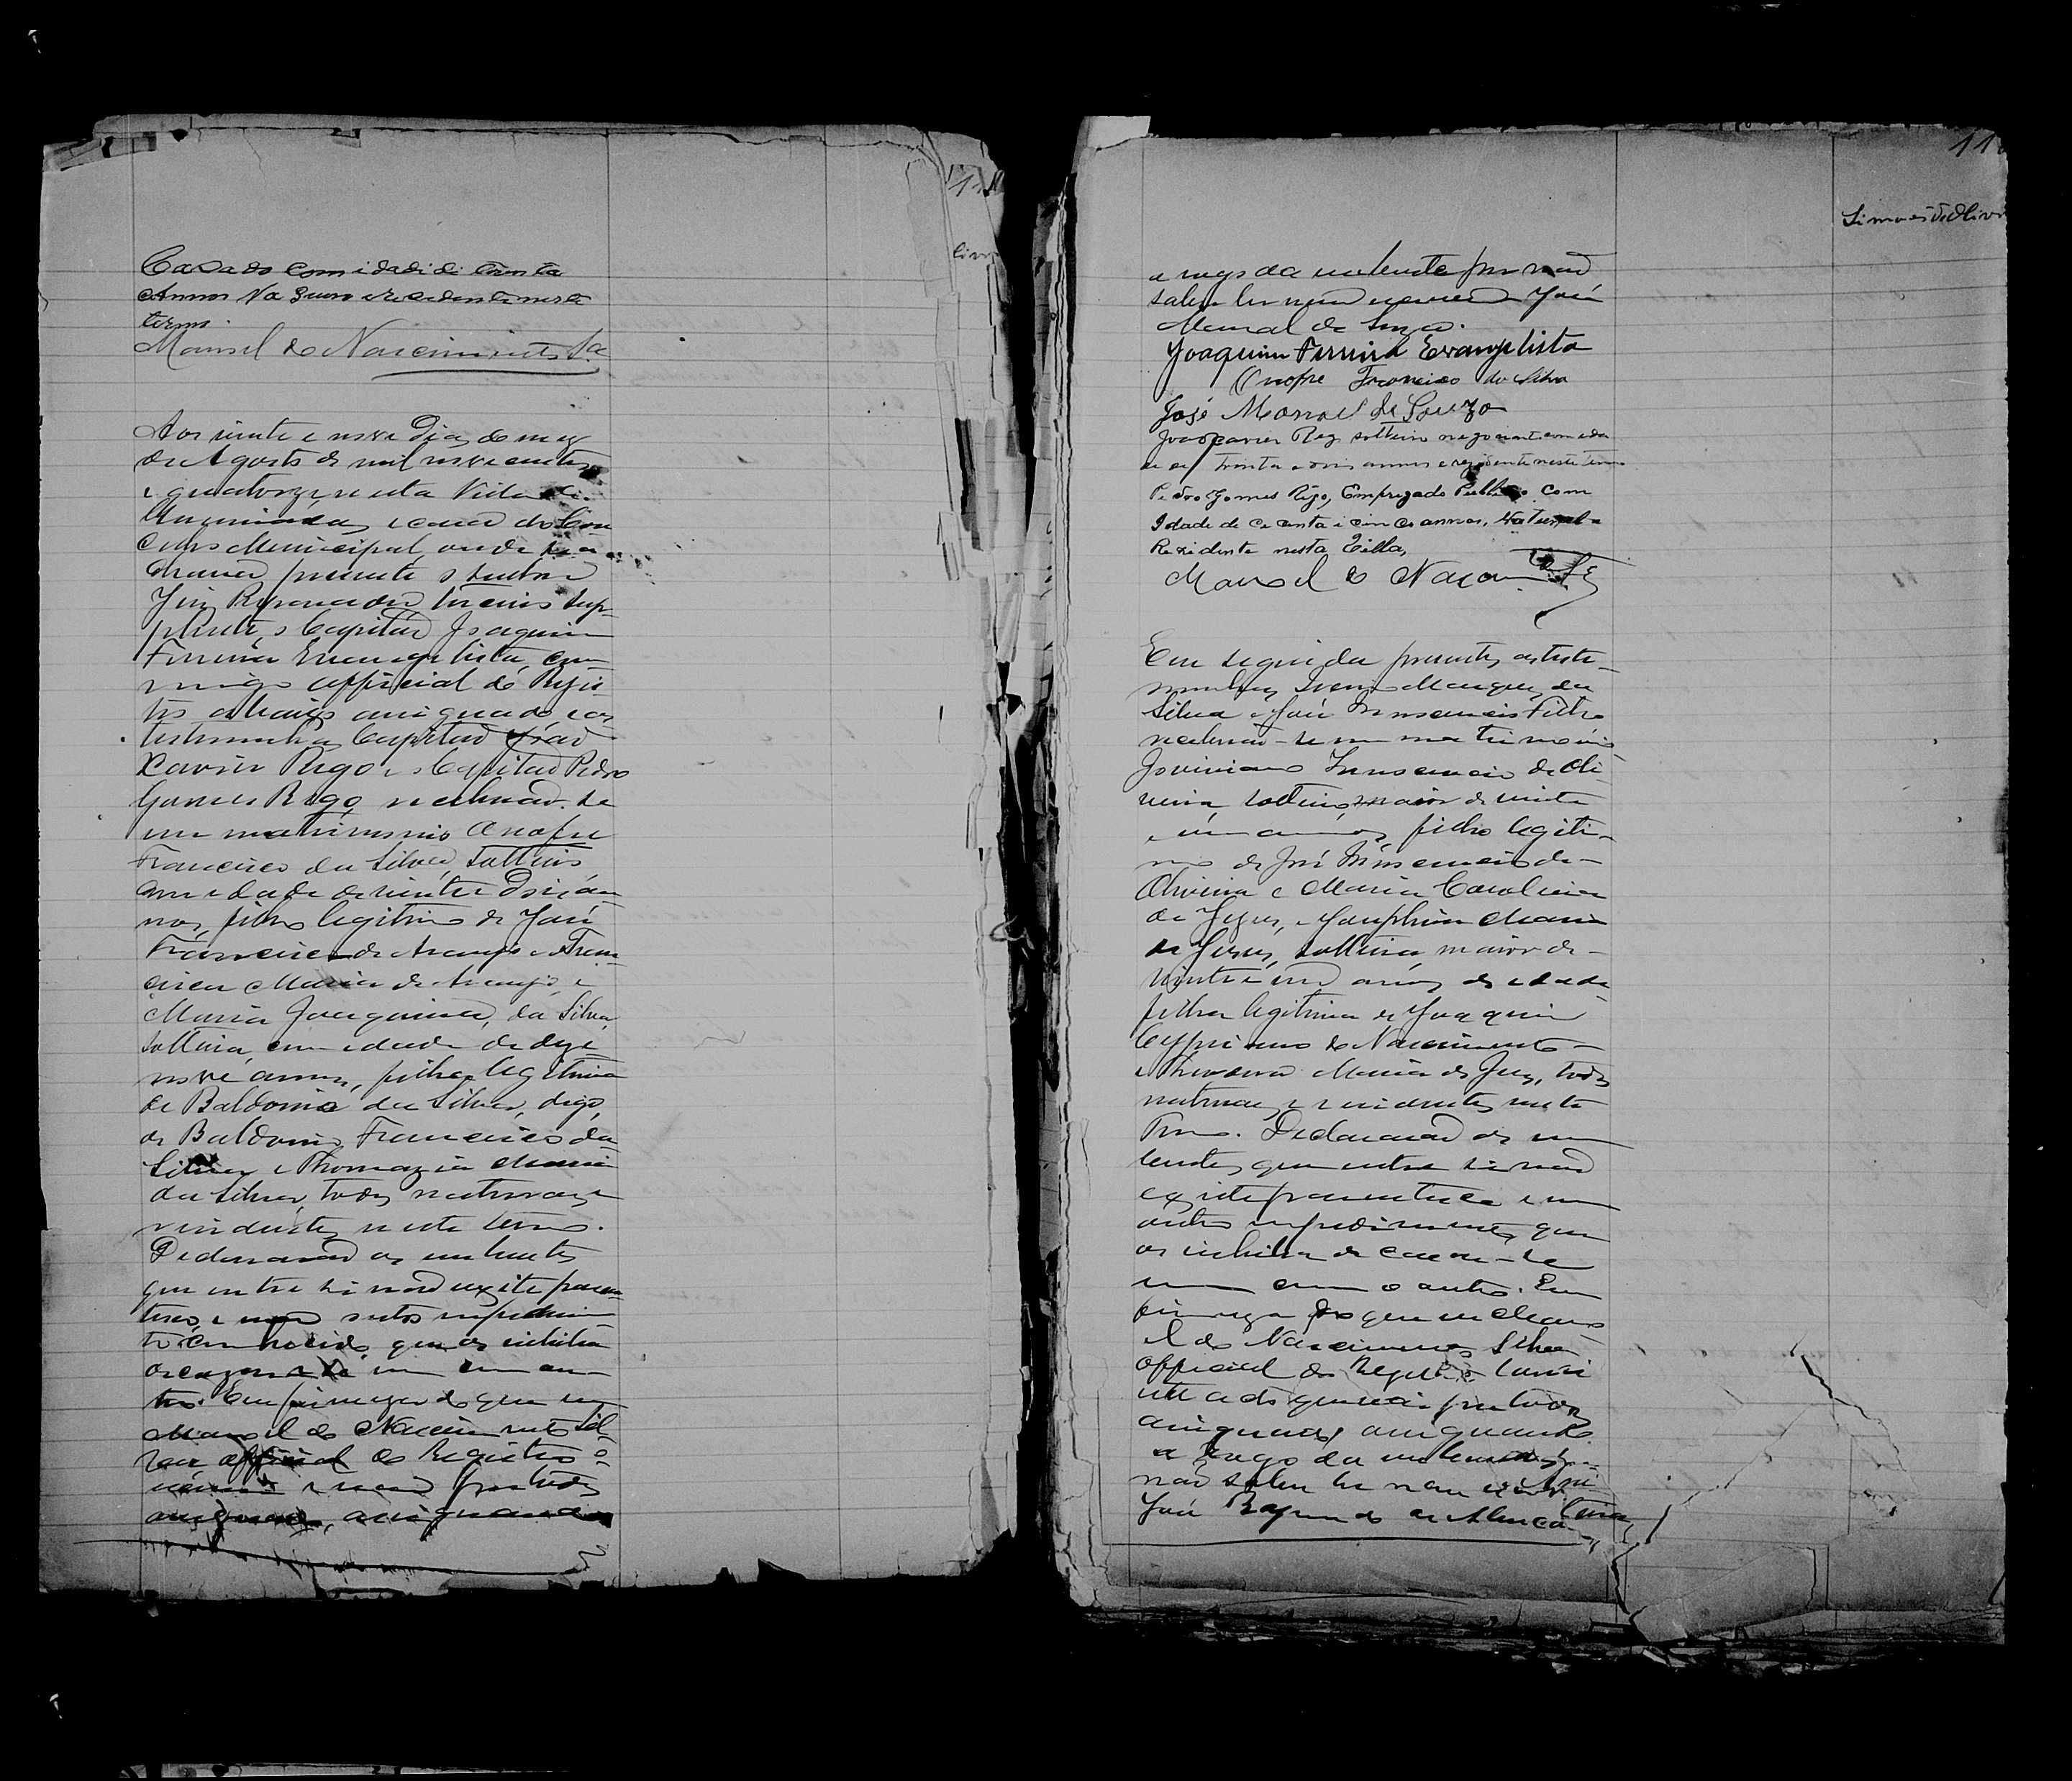 Casado com idade de trinta
Annos Vaqueiro e rezidente neste
termo.
Manoel do Nascimento Sa
Aos vinte e nove dias do mez
de Agosto de mil nove centos
e quatorze, nesta Villa de
e casa do Con
celho Municipal, onde se a
chava presente o senhor
Juiz Preparador terceiro sup-
plente, o Capitão Joaquim
Ferreira Evangelista, com
migo official do Regis
tro abaixo assignado, e as
testemunhas Capitão João
Xavier Rego e o Capitão Pedro
Gomes Rego, receberão-se
em matrimonio Onofre
Francisco da Silva, solteiro
com edade de vinte e dois an
nos, filho legitimo de José
Francisco de Araujo e Fran-
cisca Maria de Araujo, e
Maria Joaquina da Silva,
solteira, com edade de deze
nove annos, filha legitima
de Baldoino da Silva, digo,
de Baldoino Francisco da
Silva e Thomazia Maria
da Silva, todos naturaes e
residentes neste termo.
Declararão os nubentes
que entre si não existe paren
tesco, e nem outro impedimen
to conhecido que os inhiba
de cazar-se um com ou-
tro. Em firmeza do que eu
Manoel do Nascimento Sil-
va official do Registro o
escrevi e vai por todos
assignado, assignando
11
a rogo da nubente por não
saber ler nem escrever José
Manoel de Souza.
Joaquim Ferreira Evangelista
Onofre Francisco da Silva
José Manoel de Souza
João Xavier Rego solteiro negociante com eda
de de trinta e dois annos e rezidente neste termo
Pedro Gomes Rêgo, Empregado Publico com
Idade de cecenta e cinco annos, Natural e
Rezidente nesta Villa,
Manoel do Nascim
Em seguida presentes as teste-
munhas Marques da
Silva e José Innocencio Filho
receberão-se em matrimonio
Joviniano Innocencio de Oli-
veira, solteiro, maior de vinte
e um annos, filho legiti-
mo de José Innocencio de
Oliveira e Maria Carolina
de Jezus, e Josephina Maria
de Jesus, solteira, maior de
vinte e um annos de edade
filha legitima de Joaquim
Cypriano do Nascimento
e Maria de Jezus, todos
naturaes e residentes neste
termo. Declararão os nu
bentes que entre si não
existe parentesco e nem
outro impedimento que
os inhiba de casar-se
um com o outro. Em
firmeza do que eu Mano
el do Nascimento Silva
Official do Registro lavrei
este acto que vai por todos
assignado, assignando
a rogo da nubente por
não saber ler nem escrever
José Raymundo de Alencar
Simões de Olivei